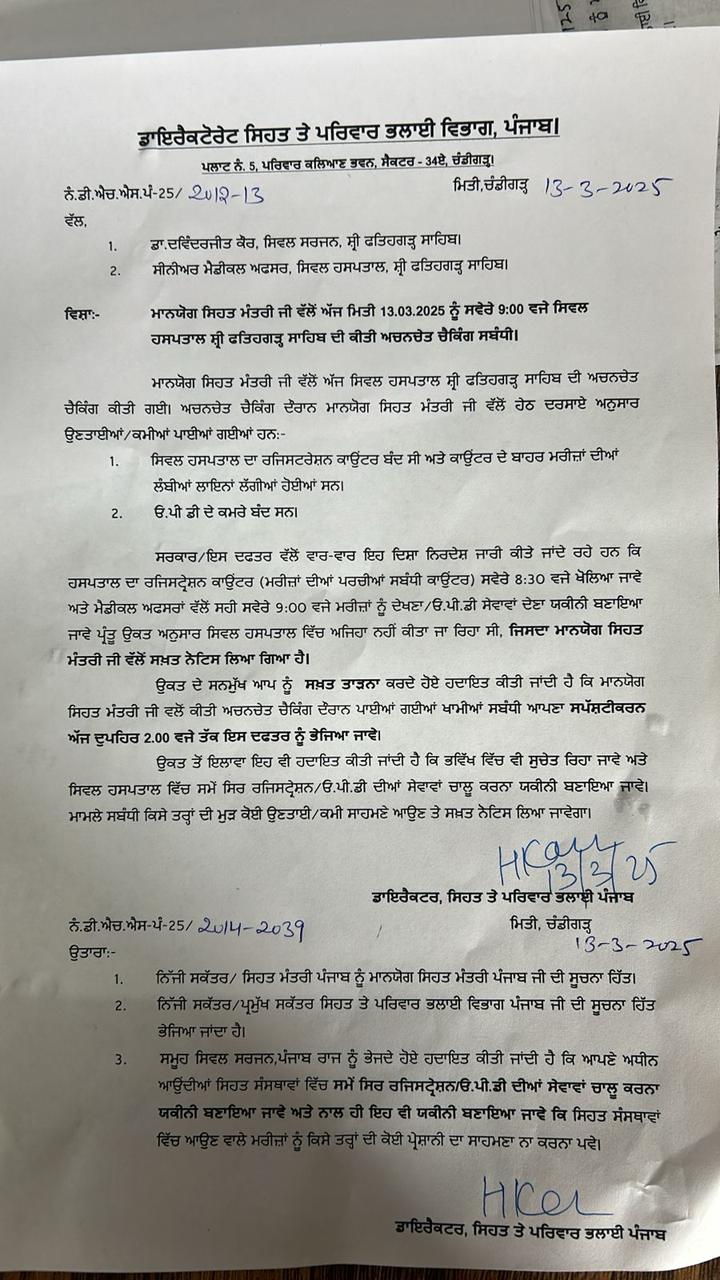 ਡਾਇਰੈਕਟੋਰੇਟ ਸਿਹਤ ਤੇ ਪਰਿਵਾਰ ਭਲਾਈ ਵਿਭਾਗ, ਪੰਜਾਬ।
ਪਲਾਟ ਨੰ. 5, ਪਰਿਵਾਰ ਕਲਿਆਣ ਭਵਨ, ਸੈਕਟਰ - 34ਏ, ਚੰਡੀਗੜ੍ਹ।
ਨੰ.ਡੀ.ਐਚ.ਐਸ.ਪੰ-25/ 2012-13 ਮਿਤੀ,ਚੰਡੀਗੜ੍ਹ 13-3-2025
ਵੱਲ,
1. ਡਾ.ਦਵਿੰਦਰਜੀਤ ਕੌਰ, ਸਿਵਲ ਸਰਜਨ, ਸ਼੍ਰੀ ਫਤਿਹਗੜ੍ਹ ਸਾਹਿਬ।
2. ਸੀਨੀਅਰ ਮੈਡੀਕਲ ਅਫਸਰ, ਸਿਵਲ ਹਸਪਤਾਲ, ਸ਼੍ਰੀ ਫਤਿਹਗੜ੍ਹ ਸਾਹਿਬ।
ਵਿਸ਼ਾ:- ਮਾਨਯੋਗ ਸਿਹਤ ਮੰਤਰੀ ਜੀ ਵੱਲੋਂ ਅੱਜ ਮਿਤੀ 13.03.2025 ਨੂੰ ਸਵੇਰੇ 9:00 ਵਜੇ ਸਿਵਲ
ਹਸਪਤਾਲ ਸ਼੍ਰੀ ਫਤਿਹਗੜ੍ਹ ਸਾਹਿਬ ਦੀ ਕੀਤੀ ਅਚਨਚੇਤ ਚੈਕਿੰਗ ਸਬੰਧੀ।
ਮਾਨਯੋਗ ਸਿਹਤ ਮੰਤਰੀ ਜੀ ਵੱਲੋਂ ਅੱਜ ਸਿਵਲ ਹਸਪਤਾਲ ਸ਼੍ਰੀ ਫਤਿਹਗੜ੍ਹ ਸਾਹਿਬ ਦੀ ਅਚਨਚੇਤ
ਚੈਕਿੰਗ ਕੀਤੀ ਗਈ। ਅਚਨਚੇਤ ਚੈਕਿੰਗ ਦੌਰਾਨ ਮਾਨਯੋਗ ਸਿਹਤ ਮੰਤਰੀ ਜੀ ਵੱਲੋਂ ਹੇਠ ਦਰਸਾਏ ਅਨੁਸਾਰ
ਉਣਤਾਈਆਂ/ਕਮੀਆਂ ਪਾਈਆਂ ਗਈਆਂ ਹਨ:-
1. ਸਿਵਲ ਹਸਪਤਾਲ ਦਾ ਰਜਿਸਟਰੇਸ਼ਨ ਕਾਉਂਟਰ ਬੰਦ ਸੀ ਅਤੇ ਕਾਉਂਟਰ ਦੇ ਬਾਹਰ ਮਰੀਜ਼ਾਂ ਦੀਆਂ
ਲੰਬੀਆਂ ਲਾਇਨਾਂ ਲੱਗੀਆਂ ਹੋਈਆਂ ਸਨ।
2. ਓ.ਪੀ ਡੀ ਦੇ ਕਮਰੇ ਬੰਦ ਸਨ।
ਸਰਕਾਰ/ਇਸ ਦਫਤਰ ਵੱਲੋਂ ਵਾਰ-ਵਾਰ ਇਹ ਦਿਸ਼ਾ ਨਿਰਦੇਸ਼ ਜਾਰੀ ਕੀਤੇ ਜਾਂਦੇ ਰਹੇ ਹਨ ਕਿ
ਹਸਪਤਾਲ ਦਾ ਰਜਿਸਟ੍ਰੇਸ਼ਨ ਕਾਉਂਟਰ (ਮਰੀਜ਼ਾਂ ਦੀਆਂ ਪਰਚੀਆਂ ਸਬੰਧੀ ਕਾਉਂਟਰ) ਸਵੇਰੇ 8:30 ਵਜੇ ਖੋਲਿਆ ਜਾਵੇ
ਅਤੇ ਮੈਡੀਕਲ ਅਫਸਰਾਂ ਵੱਲੋਂ ਸਹੀ ਸਵੇਰੇ 9:00 ਵਜੇ ਮਰੀਜ਼ਾਂ ਨੂੰ ਦੇਖਣਾ/ਓ.ਪੀ.ਡੀ ਸੇਵਾਵਾਂ ਦੇਣਾ ਯਕੀਨੀ ਬਣਾਇਆ
ਜਾਵੇ ਪ੍ਰੰਤੂ ਉਕਤ ਅਨੁਸਾਰ ਸਿਵਲ ਹਸਪਤਾਲ ਵਿੱਚ ਅਜਿਹਾ ਨਹੀਂ ਕੀਤਾ ਜਾ ਰਿਹਾ ਸੀ, ਜਿਸਦਾ ਮਾਨਯੋਗ ਸਿਹਤ
ਮੰਤਰੀ ਜੀ ਵੱਲੋਂ ਸਖ਼ਤ ਨੋਟਿਸ ਲਿਆ ਗਿਆ ਹੈ।
ਉਕਤ ਦੇ ਸਨਮੁੱਖ ਆਪ ਨੂੰ ਸਖ਼ਤ ਤਾੜਨਾ ਕਰਦੇ ਹੋਏ ਹਦਾਇਤ ਕੀਤੀ ਜਾਂਦੀ ਹੈ ਕਿ ਮਾਨਯੋਗ
ਸਿਹਤ ਮੰਤਰੀ ਜੀ ਵਲੋਂ ਕੀਤੀ ਅਚਨਚੇਤ ਚੈਕਿੰਗ ਦੌਰਾਨ ਪਾਈਆਂ ਗਈਆਂ ਖਾਮੀਆਂ ਸਬੰਧੀ ਆਪਣਾ ਸਪੱਸ਼ਟੀਕਰਨ
ਅੱਜ ਦੁਪਹਿਰ 2.00 ਵਜੇ ਤੱਕ ਇਸ ਦਫਤਰ ਨੂੰ ਭੇਜਿਆ ਜਾਵੇ।
ਉਕਤ ਤੋਂ ਇਲਾਵਾ ਇਹ ਵੀ ਹਦਾਇਤ ਕੀਤੀ ਜਾਂਦੀ ਹੈ ਕਿ ਭਵਿੱਖ ਵਿੱਚ ਵੀ ਸੁਚੇਤ ਰਿਹਾ ਜਾਵੇ ਅਤੇ
ਸਿਵਲ ਹਸਪਤਾਲ ਵਿੱਚ ਸਮੇਂ ਸਿਰ ਰਜਿਸਟ੍ਰੇਸ਼ਨ/ਓ.ਪੀ.ਡੀ ਦੀਆਂ ਸੇਵਾਵਾਂ ਚਾਲੂ ਕਰਨਾ ਯਕੀਨੀ ਬਣਾਇਆ ਜਾਵੇ।
ਮਾਮਲੇ ਸਬੰਧੀ ਕਿਸੇ ਤਰ੍ਹਾਂ ਦੀ ਮੁੜ ਕੋਈ ਉਣਤਾਈ/ਕਮੀ ਸਾਹਮਣੇ ਆਉਣ ਤੇ ਸਖ਼ਤ ਨੋਟਿਸ ਲਿਆ ਜਾਵੇਗਾ।
13/3/25
ਡਾਇਰੈਕਟਰ, ਸਿਹਤ ਤੇ ਪਰਿਵਾਰ ਭਲਾਈ ਪੰਜਾਬ
ਨੰ.ਡੀ.ਐਚ.ਐਸ-ਪੰ-25/ 2014-2039 ਮਿਤੀ, ਚੰਡੀਗੜ੍ਹ
13-3-2025
ਉਤਾਰਾ:-
1. ਨਿੱਜੀ ਸਕੱਤਰ/ ਸਿਹਤ ਮੰਤਰੀ ਪੰਜਾਬ ਨੂੰ ਮਾਨਯੋਗ ਸਿਹਤ ਮੰਤਰੀ ਪੰਜਾਬ ਜੀ ਦੀ ਸੂਚਨਾ ਹਿੱਤ।
2. ਨਿੱਜੀ ਸਕੱਤਰ/ਪ੍ਰਮੁੱਖ ਸਕੱਤਰ ਸਿਹਤ ਤੇ ਪਰਿਵਾਰ ਭਲਾਈ ਵਿਭਾਗ ਪੰਜਾਬ ਜੀ ਦੀ ਸੂਚਨਾ ਹਿੱਤ
ਭੇਜਿਆ ਜਾਂਦਾ ਹੈ।
3. ਸਮੂਹ ਸਿਵਲ ਸਰਜਨ,ਪੰਜਾਬ ਰਾਜ ਨੂੰ ਭੇਜਦੇ ਹੋਏ ਹਦਾਇਤ ਕੀਤੀ ਜਾਂਦੀ ਹੈ ਕਿ ਆਪਣੇ ਅਧੀਨ
ਆਉਂਦੀਆਂ ਸਿਹਤ ਸੰਸਥਾਵਾਂ ਵਿੱਚ ਸਮੇਂ ਸਿਰ ਰਜਿਸਟ੍ਰੇਸ਼ਨ/ਓ.ਪੀ.ਡੀ ਦੀਆਂ ਸੇਵਾਵਾਂ ਚਾਲੂ ਕਰਨਾ
ਯਕੀਨੀ ਬਣਾਇਆ ਜਾਵੇ ਅਤੇ ਨਾਲ ਹੀ ਇਹ ਵੀ ਯਕੀਨੀ ਬਣਾਇਆ ਜਾਵੇ ਕਿ ਸਿਹਤ ਸੰਸਥਾਵਾਂ
ਵਿੱਚ ਆਉਣ ਵਾਲੇ ਮਰੀਜ਼ਾਂ ਨੂੰ ਕਿਸੇ ਤਰ੍ਹਾਂ ਦੀ ਕੋਈ ਪ੍ਰੇਸ਼ਾਨੀ ਦਾ ਸਾਹਮਣਾ ਨਾ ਕਰਨਾ ਪਵੇ।
ਡਾਇਰੈਕਟਰ, ਸਿਹਤ ਤੇ ਪਰਿਵਾਰ ਭਲਾਈ ਪੰਜਾਬ